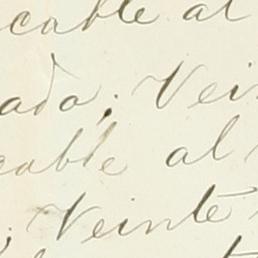 cable al
ado; Vein
cable al
; Veinte